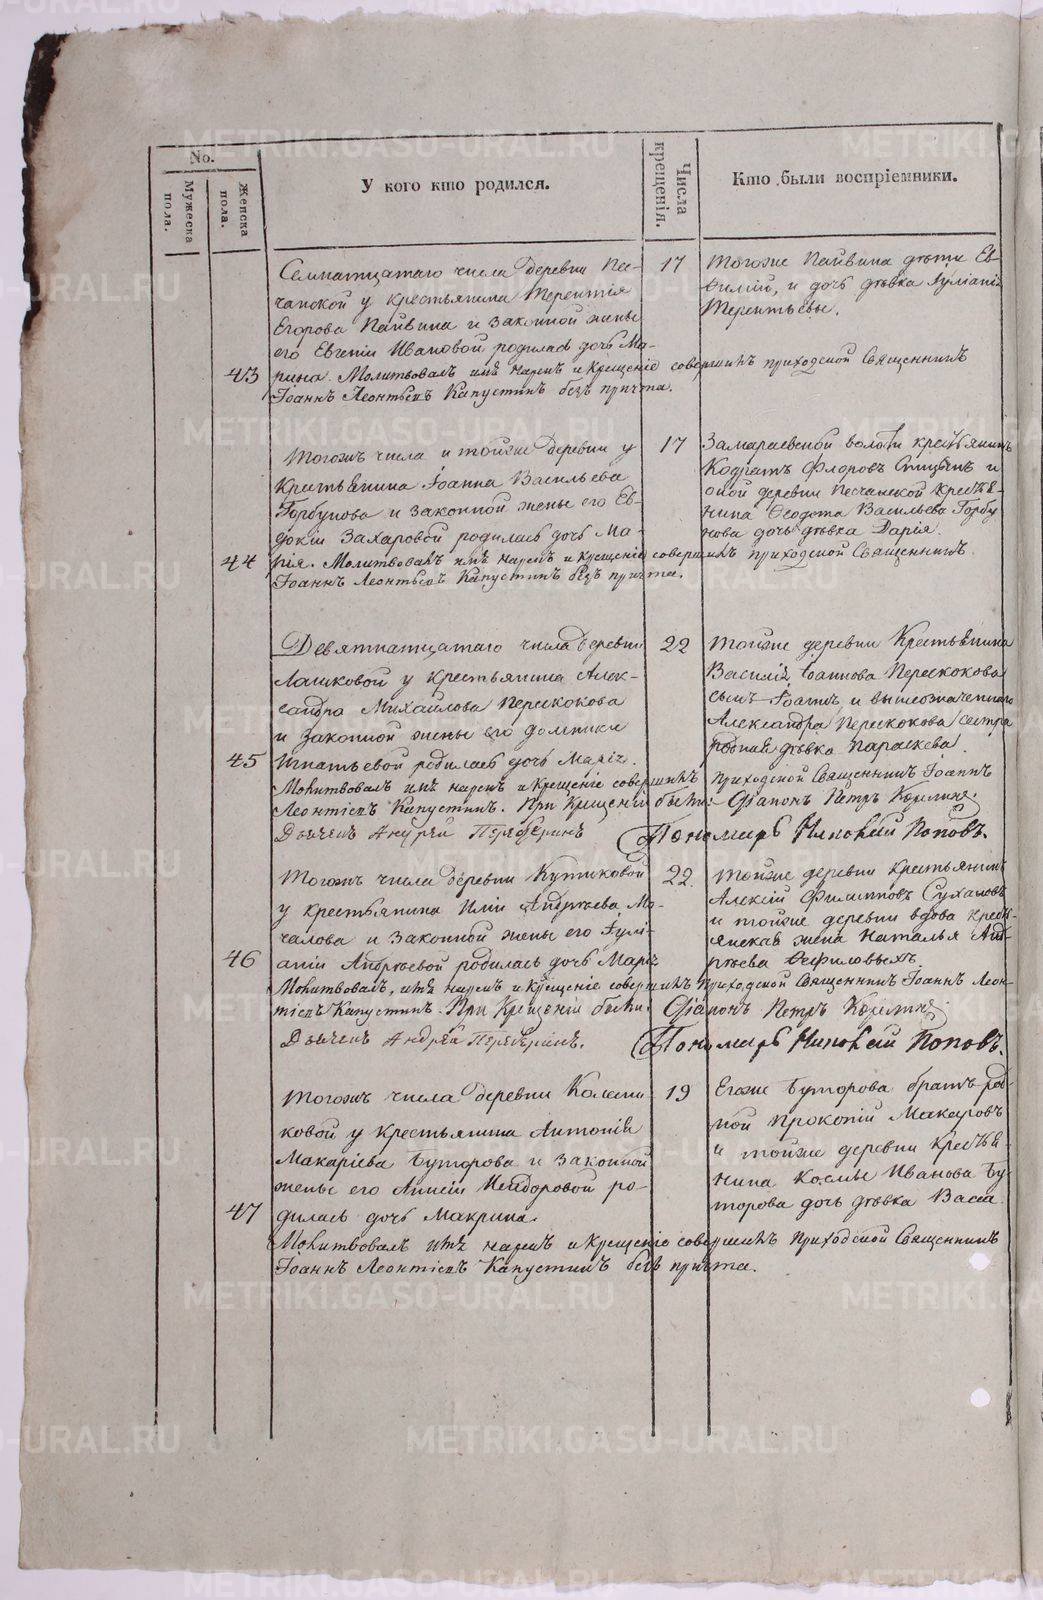 No.
Мужеска пола.
Женска пола.
У кого кто родился.
Числа крещенія.
Кто были воспріемники.
Семнатцатаго числа деревни Пес-
чанской у крестьянина Терентія
Егорова Пайвина и законной жены
его Евгеніи Ивановой родилась дочь Ма-
43 рина. Молитвовалъ имя нарекъ и Крещеніе совершилъ приходской Священникъ
Іоаннъ Леонтьевъ Капустинъ безъ причта.
17
Тогоже Пайвина дѣти Ев-
и дочь дѣвка Іуліанія
Терентьевы.
Тогожъ числа и тойже деревни у
Крестьянина Іоанна Васильева
Горбунова и законной жены его Ев-
докіи Захаровой родилась дочь Ма-
44 рія. Молитвовалъ имя нарекъ и крещеніе совершилъ приходской Священникъ
Іоаннъ Леонтьевъ Капустинъ безъ причта.
17
Замараевской волости крестьянинъ
Кодратъ Флоровъ и
оной деревни Песчанской Крестья-
нина Ѳеодота Васильева Горбу
нова дочь дѣвка Дарія.
Девятнатцатаго числа деревни
Лашковой у крестьянина Алек-
сандра Михайлова Перескокова
и законной жены его Домники
45 Игнатьевой родилась дочь Марія.
Молитвовалъ имя нарекъ и Крещеніе совершилъ приходской Священникъ Іоаннъ
Леонтіевъ Капустинъ. При Крещеніи были: Діаконъ Петръ
Дьячекъ Андрей Пономарь Николай Поповъ.
22
тойже деревни Крестьянина
Василія Іоаннова Перескокова
сынъ Іоаннъ и вышеозначеннаго
Александра Перескокова сестра
родная дѣвка Параскева.
Тогожъ числа деревни Кутиковой
у крестьянина Иліи Андреева Мо-
чалова и законной жены его Іулі-
46 аніи Андреевой родилась дочь Марія
Молитвовалъ, имя нарекъ и Крещеніе совершилъ Приходской Священникъ Іоаннъ Леон-
тіевъ Капустинъ. При Крещеніи были: Діаконъ Петръ
Дьячекъ Андрей Пономарь Николай Поповъ.
22.
тойже деревни Крестьянинъ
Алексій Филипповъ Сухановъ
и тойже деревни вдова крестья-
янская жена Наталья Анд-
реева
Тогожъ числа деревни Колесни-
ковой у крестьянина Антонія
Макаріева Буторова и законной
жены его Анисіи Исидоровой ро-
47 дилась дочь Макрина.
Молитвовалъ имя нарекъ и Крещеніе совершилъ Приходской Священникъ
Іоаннъ Леонтіевъ Капустинъ безъ причта.
19
Егоже Буторова братъ род-
ной Прокопій Макаровъ
и тойже деревни Крестья-
нина Космы Иванова Бу-
торова дочь дѣвка Васса
METRIKI.GASO-URAL.RU